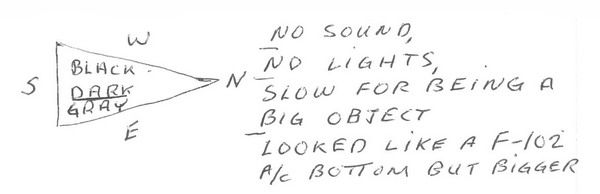 W
S
BLACK
DARK
GRAY
N
E
NO SOUND,
NO LIGHTS,
SLOW FOR BEING A
BIG OBJECT
LOOKED LIKE A F-102
A/C BOTTOM BUT BIGGER